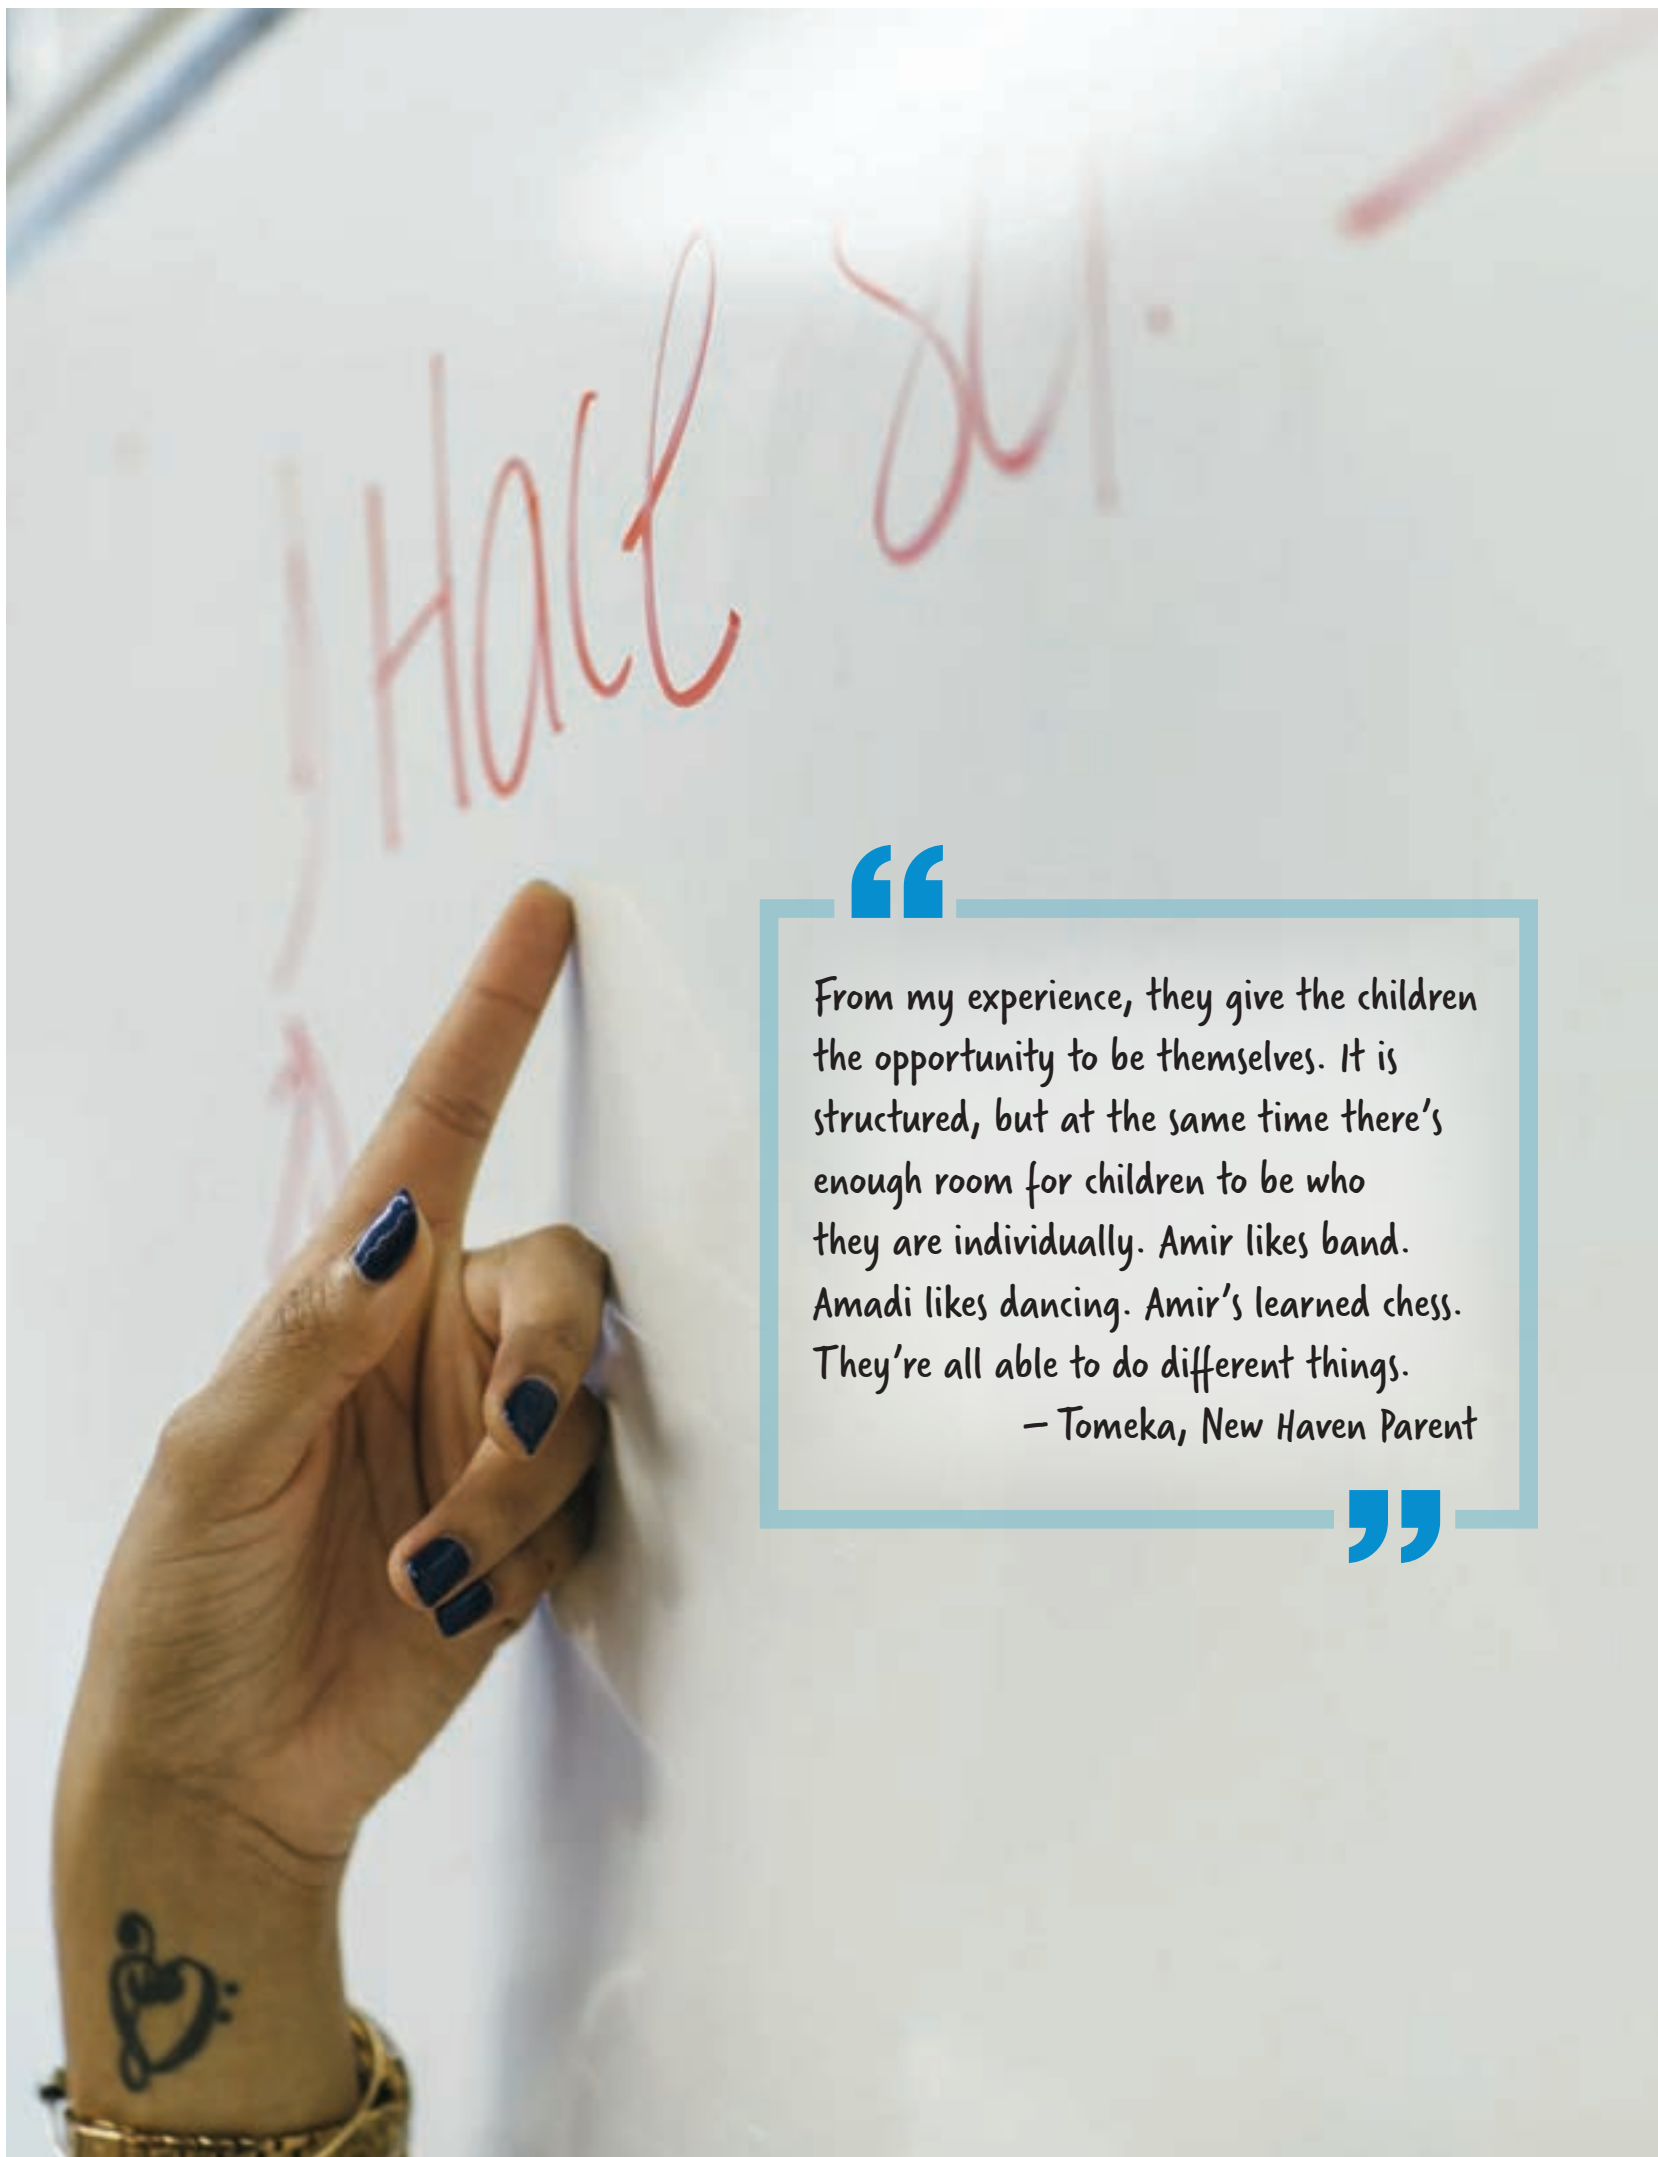 Hace sol.
From my experience, they give the children
the opportunity to be themselves. It is
structured, but at the same time there's
enough room for children to be who
they are individually. Amir likes band.
Amadi likes dancing. Amir's learned chess.
They're all able to do different things.
– Tomeka, New Haven Parent